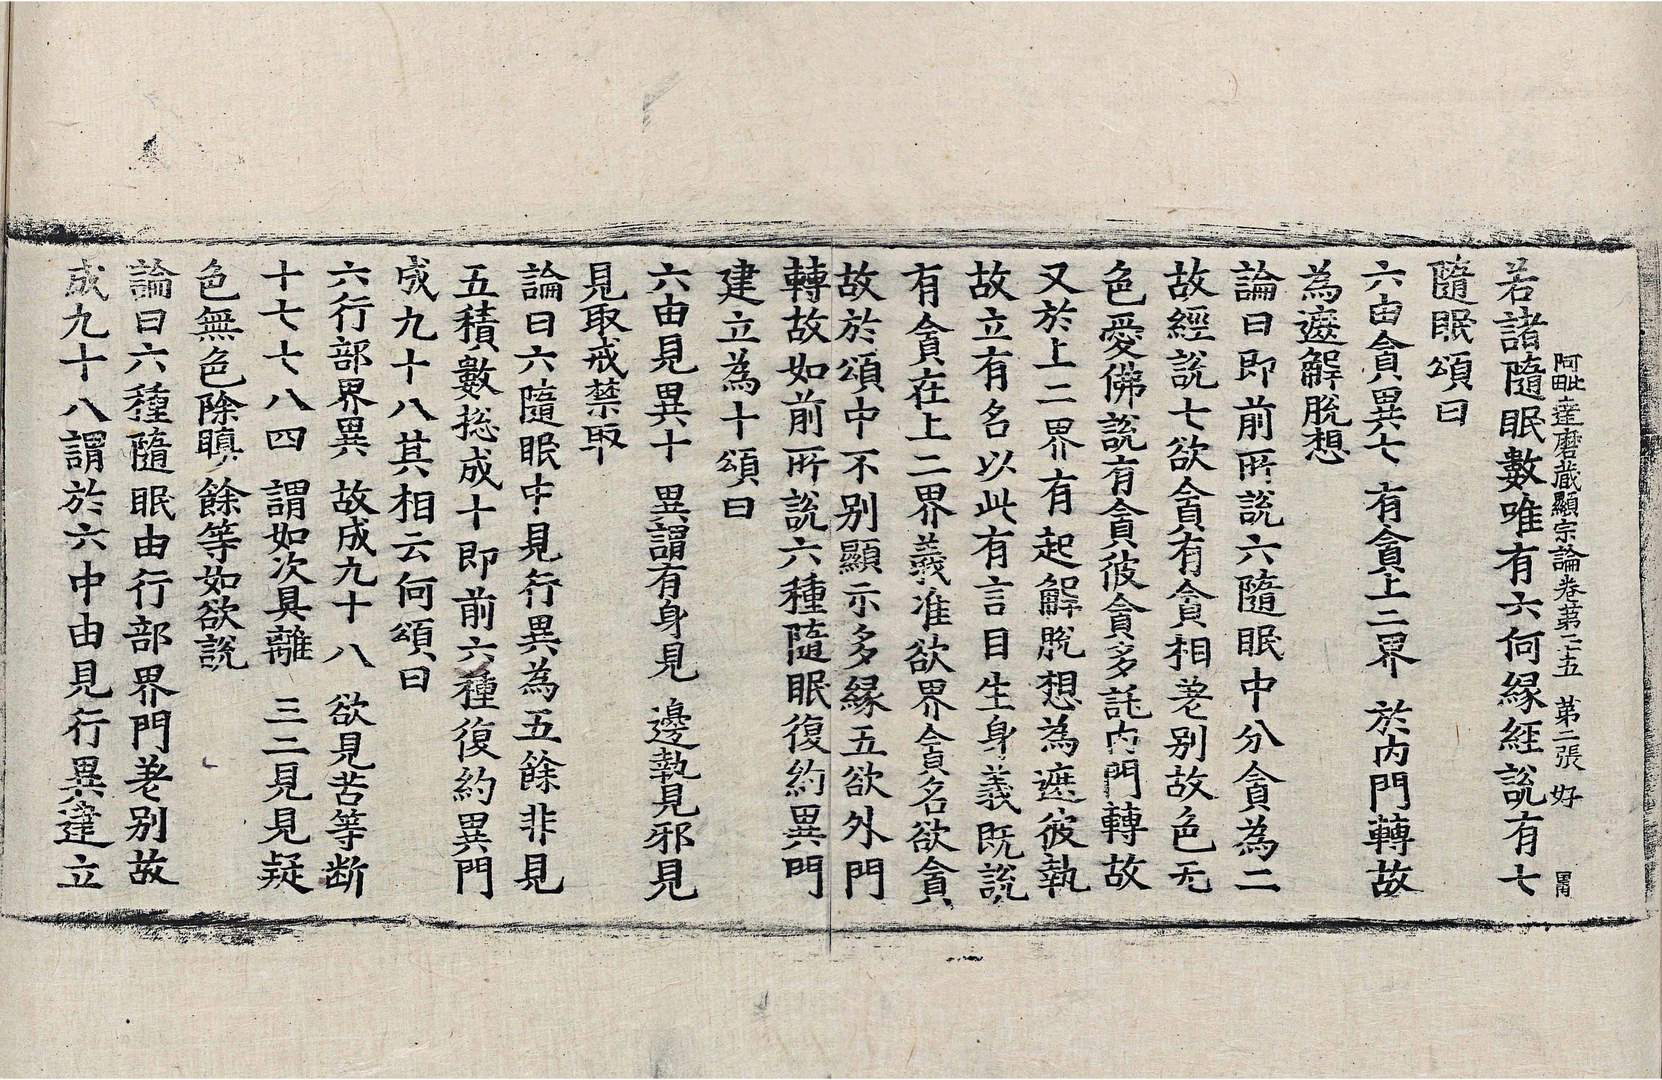 阿毗達磨藏顯宗論卷第二十五　第二張　好　胃
若諸隨眠數唯有六何緣經說有七
隨眠頌曰
六由貪異七　有貪上二界　於內門轉故
為遮解脫想
論曰即前所說六隨眠中分貪為二
故經說七欲貪有貪相差別故色无
色愛佛說有貪彼貪多託內門轉故
又於上二界有起解脫想為遮彼執
故立有名以此有言目生身義既說
有貪在上二界義准欲界貪名欲貪
故於頌中不別顯示多緣五欲外門
轉故如前所說六種隨眠復約異門
建立為十頌曰
六由見異十　異謂有身見　邊執見邪見
見取戒禁取
論曰六隨眠中見行異為五餘非見
五積數捴成十即前六種復約異門
成九十八其相云何頌曰
六行部界異　故成九十八　欲見苦等断
十七七八四　謂如次具離　三二見見疑
色無色除瞋　餘等如欲說
論曰六種隨眠由行部界門差別故
成九十八謂於六中由見行異建立